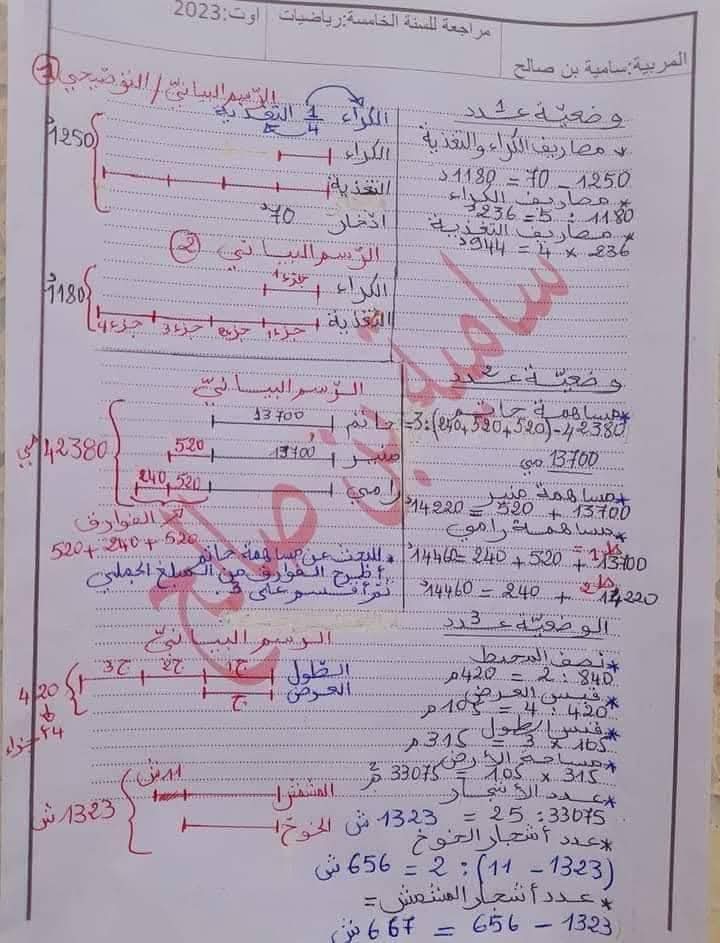 المربية:سامية بن صالح
مراجعة للسنة الخامسة:رياضيات
اوت:2023
وضعيّة عـ1ـدد
* مصاريف الكراء والتغذية
1250 - 70 = 1180د
* مصاريف الكراء
1180 : 5 = 236د
* مصاريف التغذية
236 × 4 = 944د
الرسم البياني / التوضيحي 1
الكراء 1/4 التغذية
الكراء
التغذية
ادخار 70د
1250د
الرّسم البياني 2
الكراء
جزء1
التغذية
جزء1 جزء2 جزء3 جزء4
1180د
وضعيّة عـ2ـدد
*مساهمة حاتم
42380-(520+520+240):3=
13700 مي
*مساهمة منير
13700 + 520 = 14220د
*مساهمة رامي
ط1 = 13700 + 520 + 240 =14460د
ط2 14220 + 240 = 14460د
الرّسم البيانيّ
حاتم 13700
منير 13700 520
رامي 520 240
42380 مي
الفوارق
520+240+520
* للبحث عن مساهمة حاتم
أطرح الفوارق من المبلغ الجملي
ثم أقسم على 3.
الوضعيّة عـ3ـدد
*نصف المحيط
840 : 2 = 420م
*قيس العرض
420 : 4 = 105 م
*قيس الطول
105 × 3 = 315 م
*مساحة الأرض
315 × 105 = 33075 م2
*عدد الأشجار
33075: 25 = 1323 ش
*عدد أشجار الخوخ
(1323 - 11) : 2 = 656 ش
* عدد أشجار المشمش =
1323 - 656 = 667 ش
الرسم البيانيّ
الطّول ج1 ج2 ج3
العرض ج
420
4 أجزاء
المشمش 11ش
الخوخ
1323 ش
سامية بن صالح